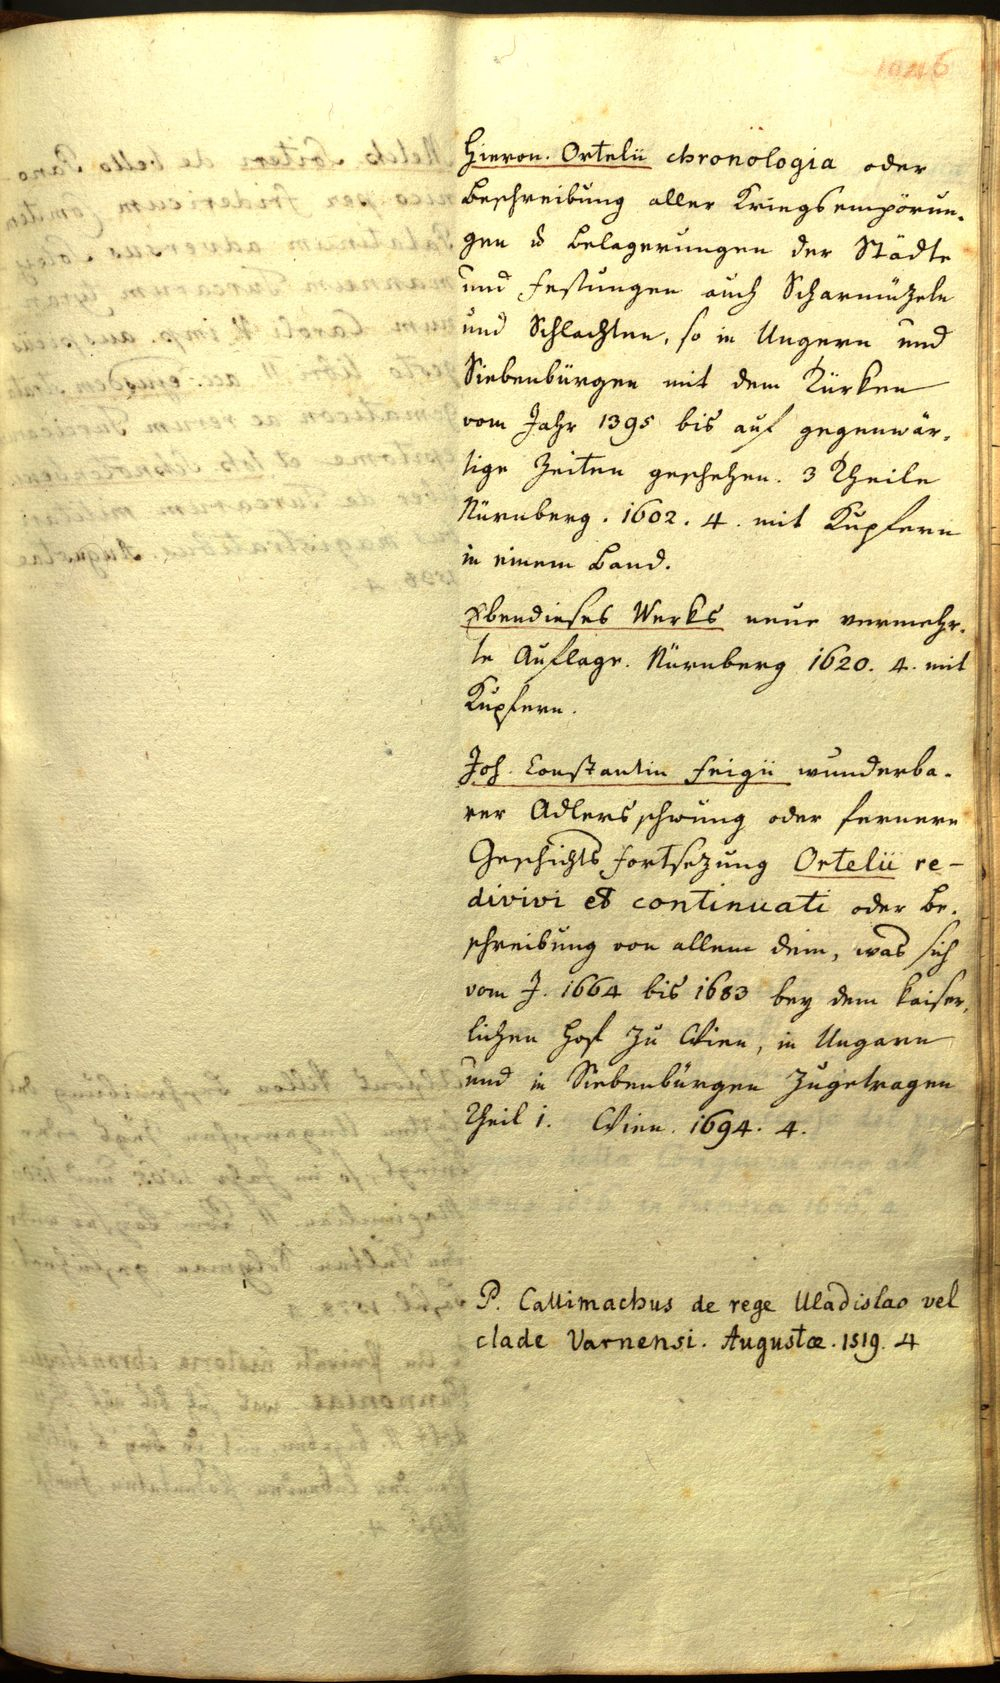 1046
Hieron. Ortelii chronologia oder
Beschreibung aller Kriegsempörun-
gen u Belagerungen der Städte
und Festungen auch Scharmüzeln
und Schlachten, so in Ungern und
Siebenbürgen mit dem Türken
vom Jahr 1395 bis auf gegenwär-
tige Zeiten geschehen. 3 Theile
Nürnberg. 1602. 4. mit Kupfern
in einem Band.
Ebendieses Werks neue vermehr-
te Auflage. Nürnberg 1620. 4. mit
Kupfern.
Joh. Constantin Feigii wunderba-
rer Adlersschwung oder fernere
Geschichts Fortsezung Ortelii re-
divivi et continuati oder Be-
schreibung von allem dem, was sich
vom J. 1664 bis 1683 bey dem kaiser-
lichen Hof zu Wien, in Ungarn
und in Siebenbürgen zugetragen
Theil 1. Wien. 1694. 4.
P. Callimachus de rege Uladislao vel
clade Varnensi. Augustæ. 1519. 4